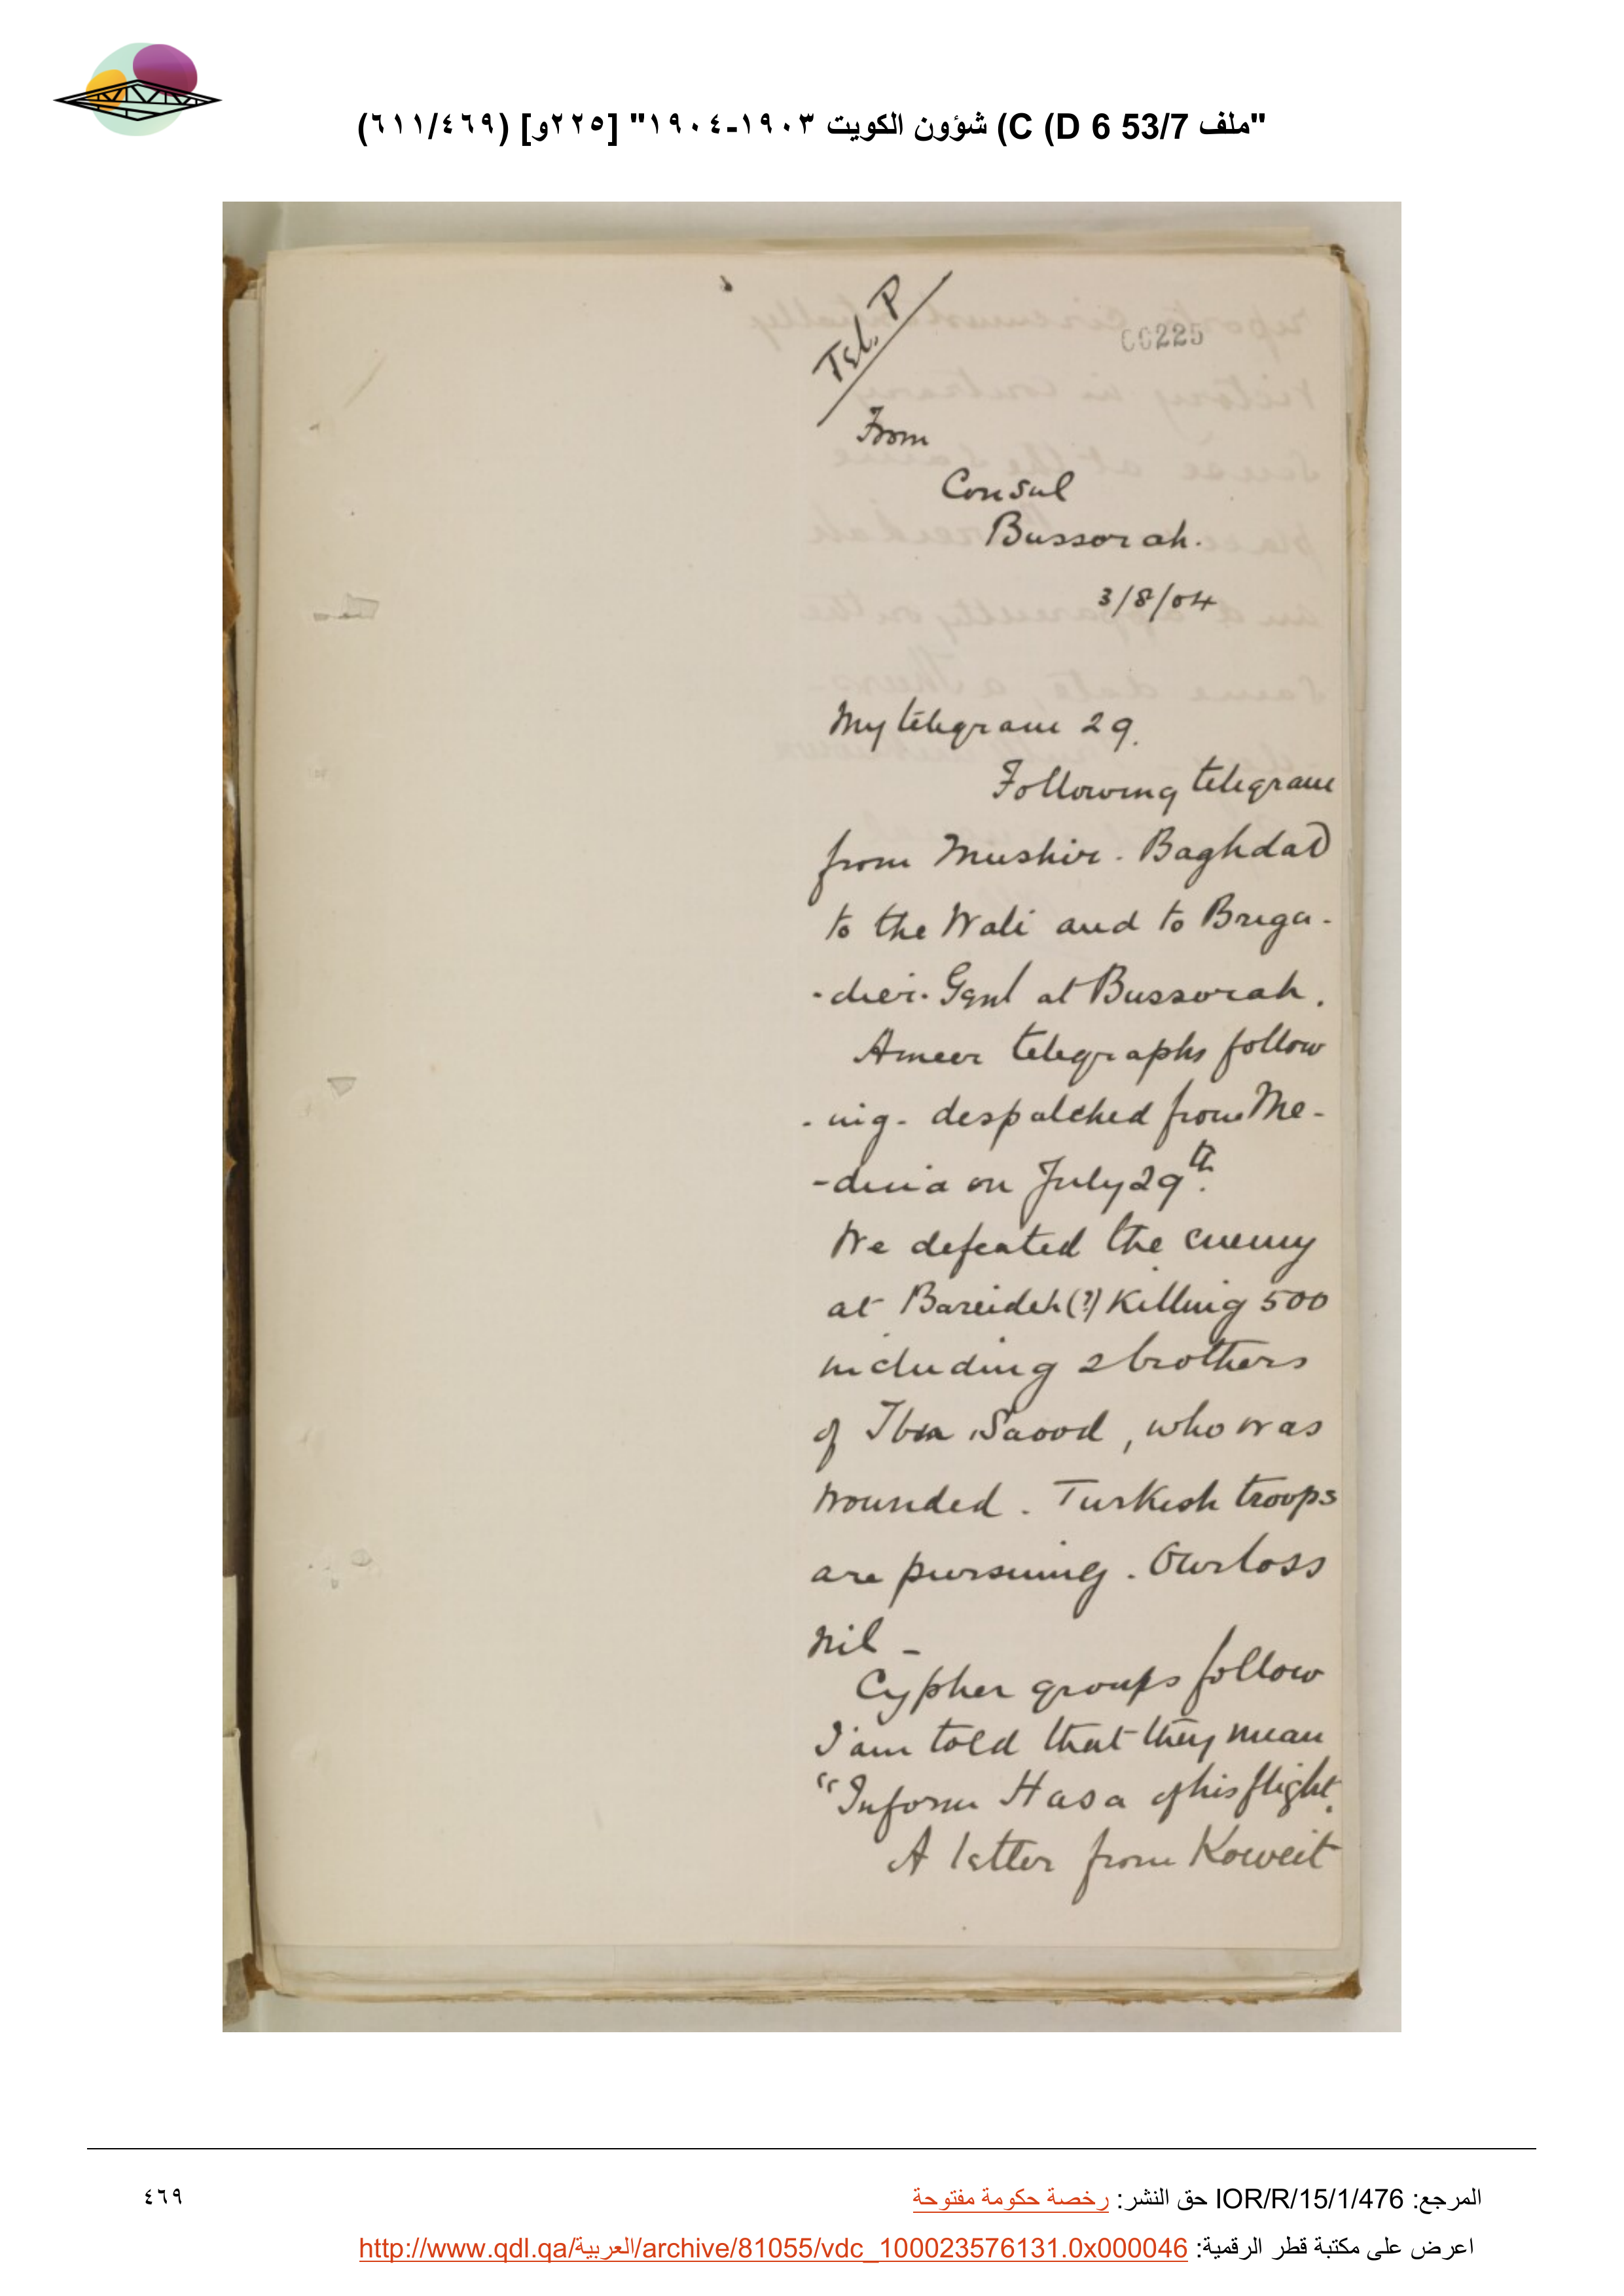 "ملف 53/7 C (D 6) شؤون الكويت ١٩٠٣-١٩٠٤" [٢٢٥و] (٦١١/٤٦٩)
Tel. P
00225
From
Consul
Bussorah.
3/8/04
My telegram 29.
Following telegram
from Mushir. Baghdad
to the Wali and to Briga-
-dier. Genl at Bussorah.
Ameer telegraphs follow
-ing- despatched from Me-
-dina on July 29th.
We defeated the enemy
at Bareideh (?) killing 500
including 2 brothers
of Ibn Saood, who was
wounded. Turkish troops
are pursuing. Our loss
nil -
Cypher groups follow
I am told that they mean
"Inform Hasa of his flight.
A letter from Koweit
المرجع: IOR/R/15/1/476 حق النشر: رخصة حكومة مفتوحة
٤٦٩
اعرض على مكتبة قطر الرقمية: http://www.qdl.qa/العربية/archive/81055/vdc_100023576131.0x000046